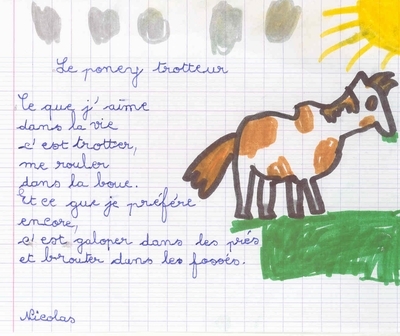 Le poney trotteur
Ce que j'aime
dans la vie
c'est trotter,
me rouler
dans la boue.
Et ce que je préfére
encore,
c'est galoper dans les prés
et brouter dans les fossés.
Nicolas